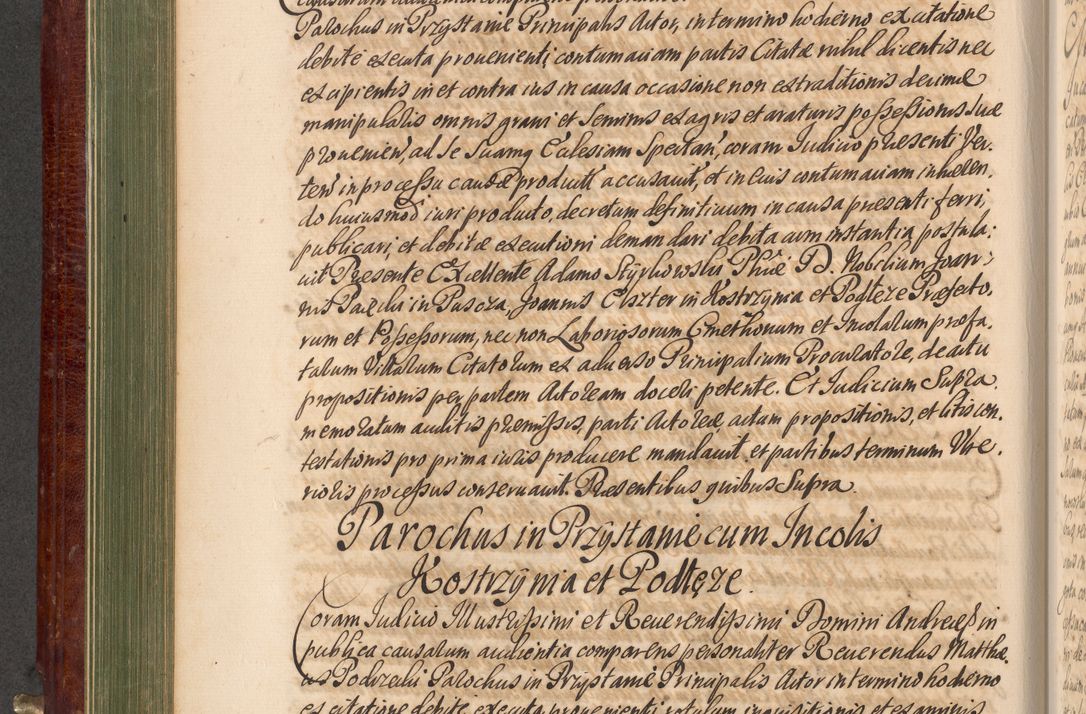 Parochus in Przystanie Principalis Actor, in termino hodierno ex citatione
debite executa provenienti contumaciam partis Citatæ nihil dicentis nec
excipientis in et contra ius in causa occasione non extraditionis decimæ
manipulalis omnis grani et Seminis ex agris et araturis possessionis suæ
provenien, ad se Suamq Ecclesiam Spectan, coram Iudicio præsenti Ver-
ten in processu causæ produxit accusavit, et in eius contumaciam inhæren-
do huiusmod iuri producto, decretum definitivum in causa præsenti ferri,
publicari, et debitæ executioni demandari debita cum instantia postula-
vit Præsente Excellente Adamo Phiæ D. Nobilium Joan-
nis in Joannis Elszter in Kostrzynia et Podłęże Præfecto-
rum et Possessorum, nec non Laboriosorum Cmethonum et Incolarum præfa-
tarum Villarum Citatorum ex adverso Principalium Procuratore, de actu
propositionis per partem Actoream doceri petente. Et Iudicium Supra
memoratum auditis præmissis, parti Actoreæ actum propositionis, et litis con-
testationis pro prima iuris producere mandavit et partibus terminum Ulte-
rioris processus conservavit. Præsentibus quibus Supra.
Parochus in Przystanie cum Incolis
Kostrzynia et Podłęże.
Coram Iudicio Illustrissimi et Reverendissimi Domini Andreæ in
publica causarum audientia comparens personaliter Reverendus Matthæ-
us Parochus in Przystanie Principalis Actor in termino hodierno
ex citatione debite executa provenienti rotulum inquisitionis et examinis